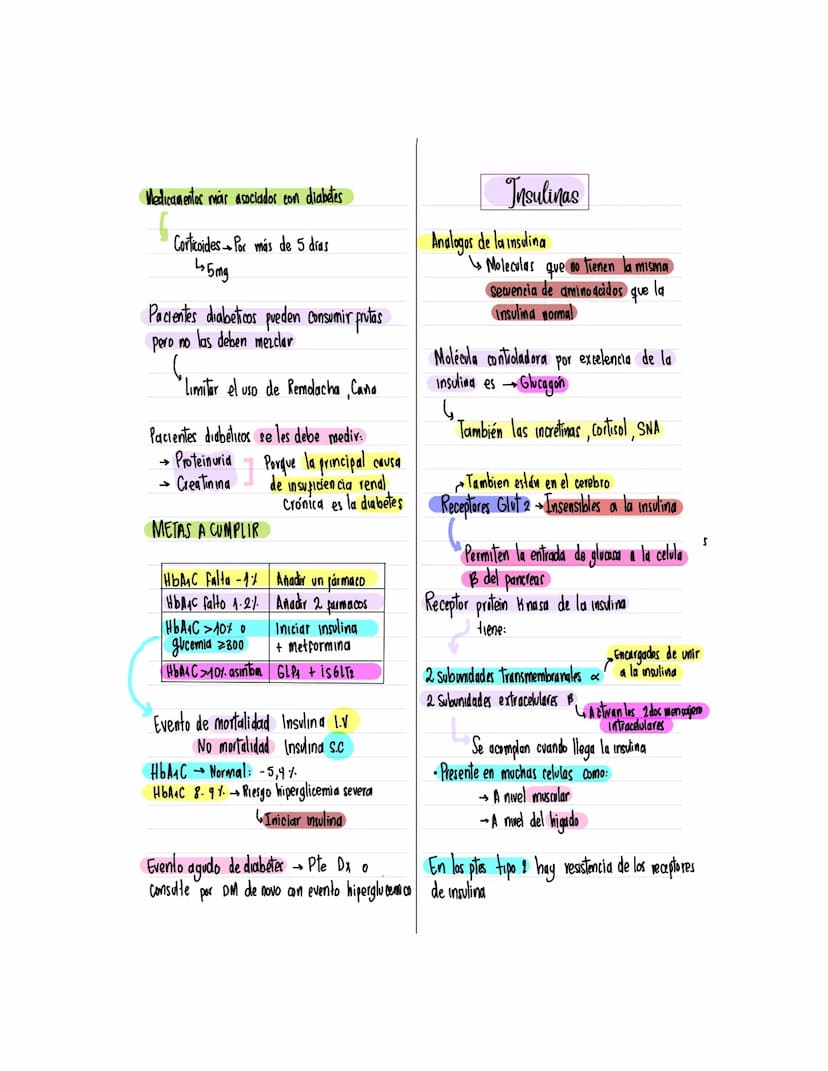 Medicamentos más asociados con diabetes
Corticoides → Por más de 5 días
↳ 5mg
Pacientes diabeticos pueden consumir frutas
pero no las deben mezclar
Limitar el uso de Remolacha, Caña
Pacientes diabéticos se les debe medir:
→ Proteinuria
→ Creatinina
Porque la principal causa
de insuficiencia renal
Crónica es la diabetes
METAS A CUMPLIR
HbA1C Falta -1% Añadir un fármaco
HbA1C falta 1-2% Añadir 2 farmacos
HbA1C >10% o Iniciar insulina
glucemia ≥300 + metformina
HbA1C >10% asintom GLP1 + iSGLT2
Evento de mortalidad Insulina I.V
No mortalidad Insulina S.C
HbA1C → Normal: -5,4%
HbA1C 8-9% → Riesgo hiperglicemia severa
↳ Iniciar insulina
Evento agudo de diabetes → Pte Dx o
Consulte por DM de novo con evento hiperglucemico
Insulinas
Analogos de la insulina
↳ Moleculas que no tienen la misma
secuencia de aminoácidos que la
insulina normal
Molécula controladora por excelencia de la
insulina es → Glucagón
También las incretinas, Cortisol, SNA
Tambien están en el cerebro
Receptores Glut 2 → Insensibles a la insulina
s
Permiten la entrada de glucosa a la celula
B del pancreas
Receptor protein Kinasa de la insulina
tiene:
Encargadas de unir
a la insulina
2 Subunidades Transmembranales α
2 Subunidades extracelulares β
Activan los 2dos mensajero
intracelulares
Se acomplan cuando llega la insulina
• Presente en muchas celulas como:
→ A nivel muscular
→ A nivel del higado
En los ptes tipo 2 hay resistencia de los receptores
de insulina